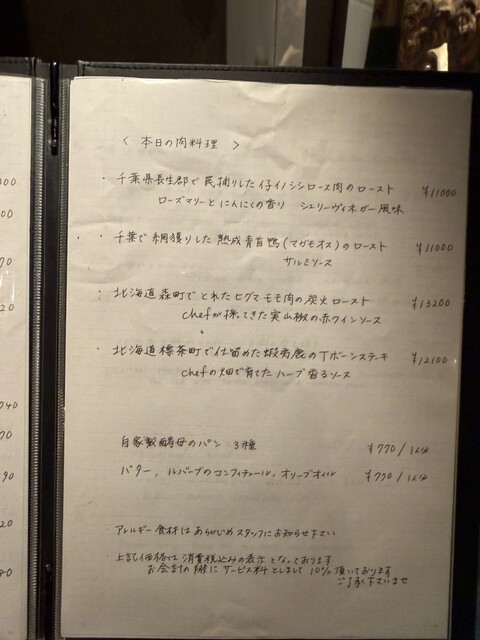 〈 本日の肉料理 〉
・千葉県長生郡で罠捕りした仔イノシシロース肉のロースト ¥11000
ローズマリーとにんにくの香り シェリーヴィネガー風味
・千葉で網獲りした熟成青首鴨(マガモオス)のロースト ¥11000
サルミソース
・北海道森町でとれたヒグマモモ肉の炭火ロースト ¥13200
chefが採ってきた実山椒の赤ワインソース
・北海道標茶町で仕留めた蝦夷鹿のTボーンステーキ ¥12100
chefの畑で育てたハーブ香るソース
自家製酵母のパン 3種 ¥770/1人分
バター、ルバーブのコンフィチュール、オリーブオイル ¥770/1人分
アレルギー食材はあらかじめスタッフにお知らせ下さい
・上記価格は消費税込みの表示となっております
お会計の際にサービス料としまして10%頂いております
ご了承下さいませ
300
00
70
20
040
70
90
20
80